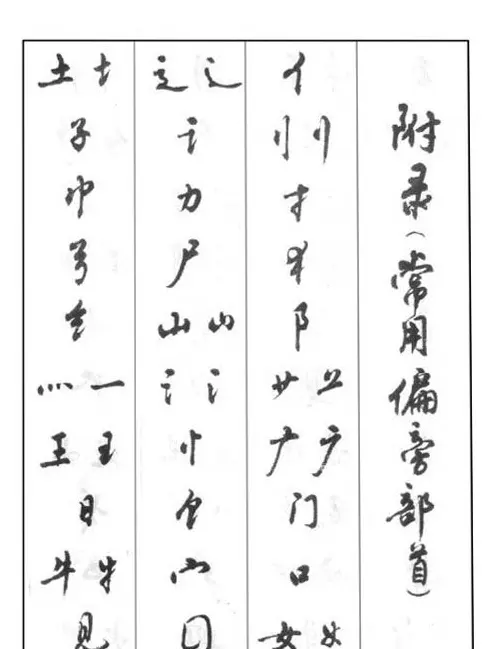 附录（常用偏旁部首）
亻
刂 刂
扌
犭
阝
艹 艹
广 广
门
口
女 女
辶 辶
讠
力
尸
山 山
氵 氵
忄
饣
宀
囗
土 土
子
巾
弓
纟
灬 一
王 王
日
牛 牛
见